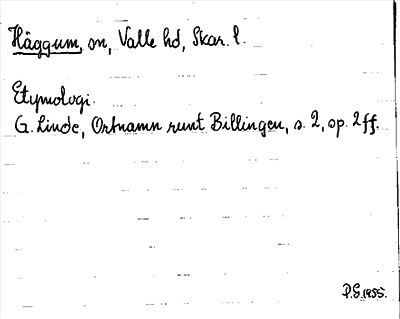 Häggum, sn, Valle hd, Skar. l.
Etymologi.
G. Linde, Ortnamn runt Billingen, s. 2, sp. 2 ff.
P.G. 1955.